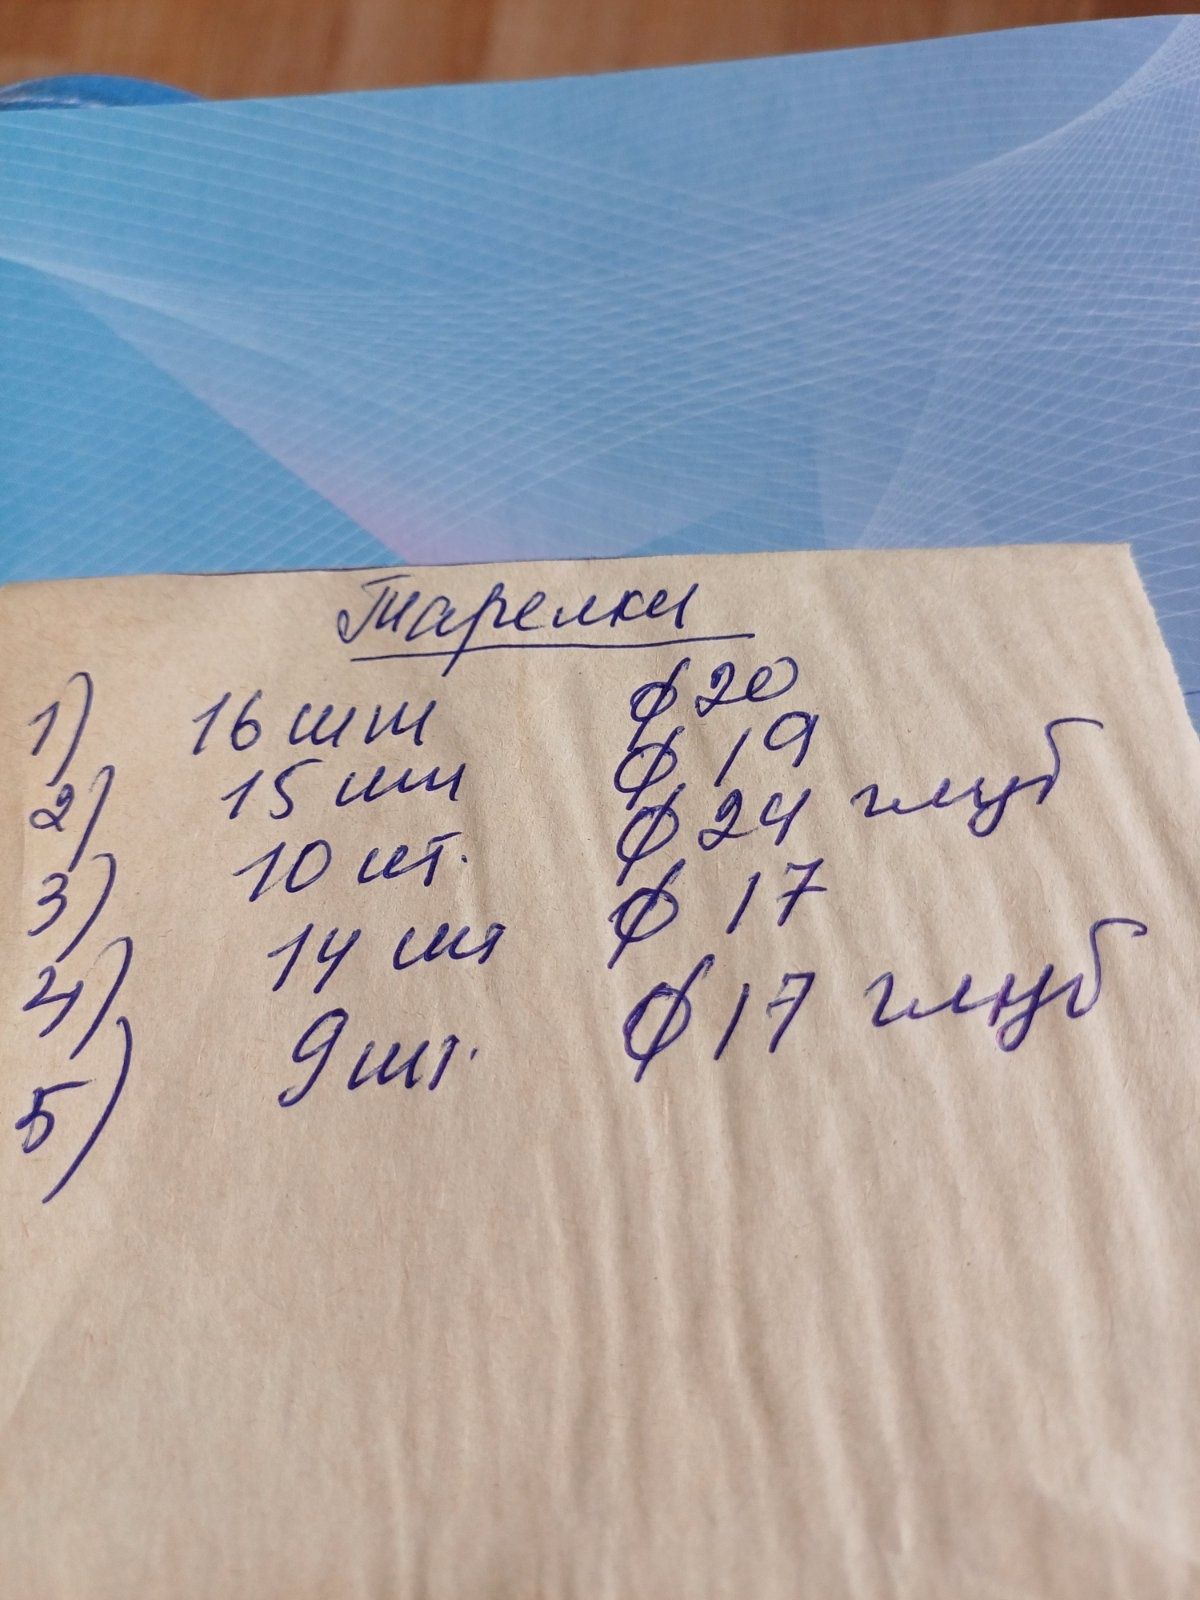 Тарелки
1) 16 шт ∅ 20
2) 15 шт ∅ 19
3) 10 шт. ∅ 24 глуб
4) 14 шт ∅ 17
5) 9 шт. ∅ 17 глуб